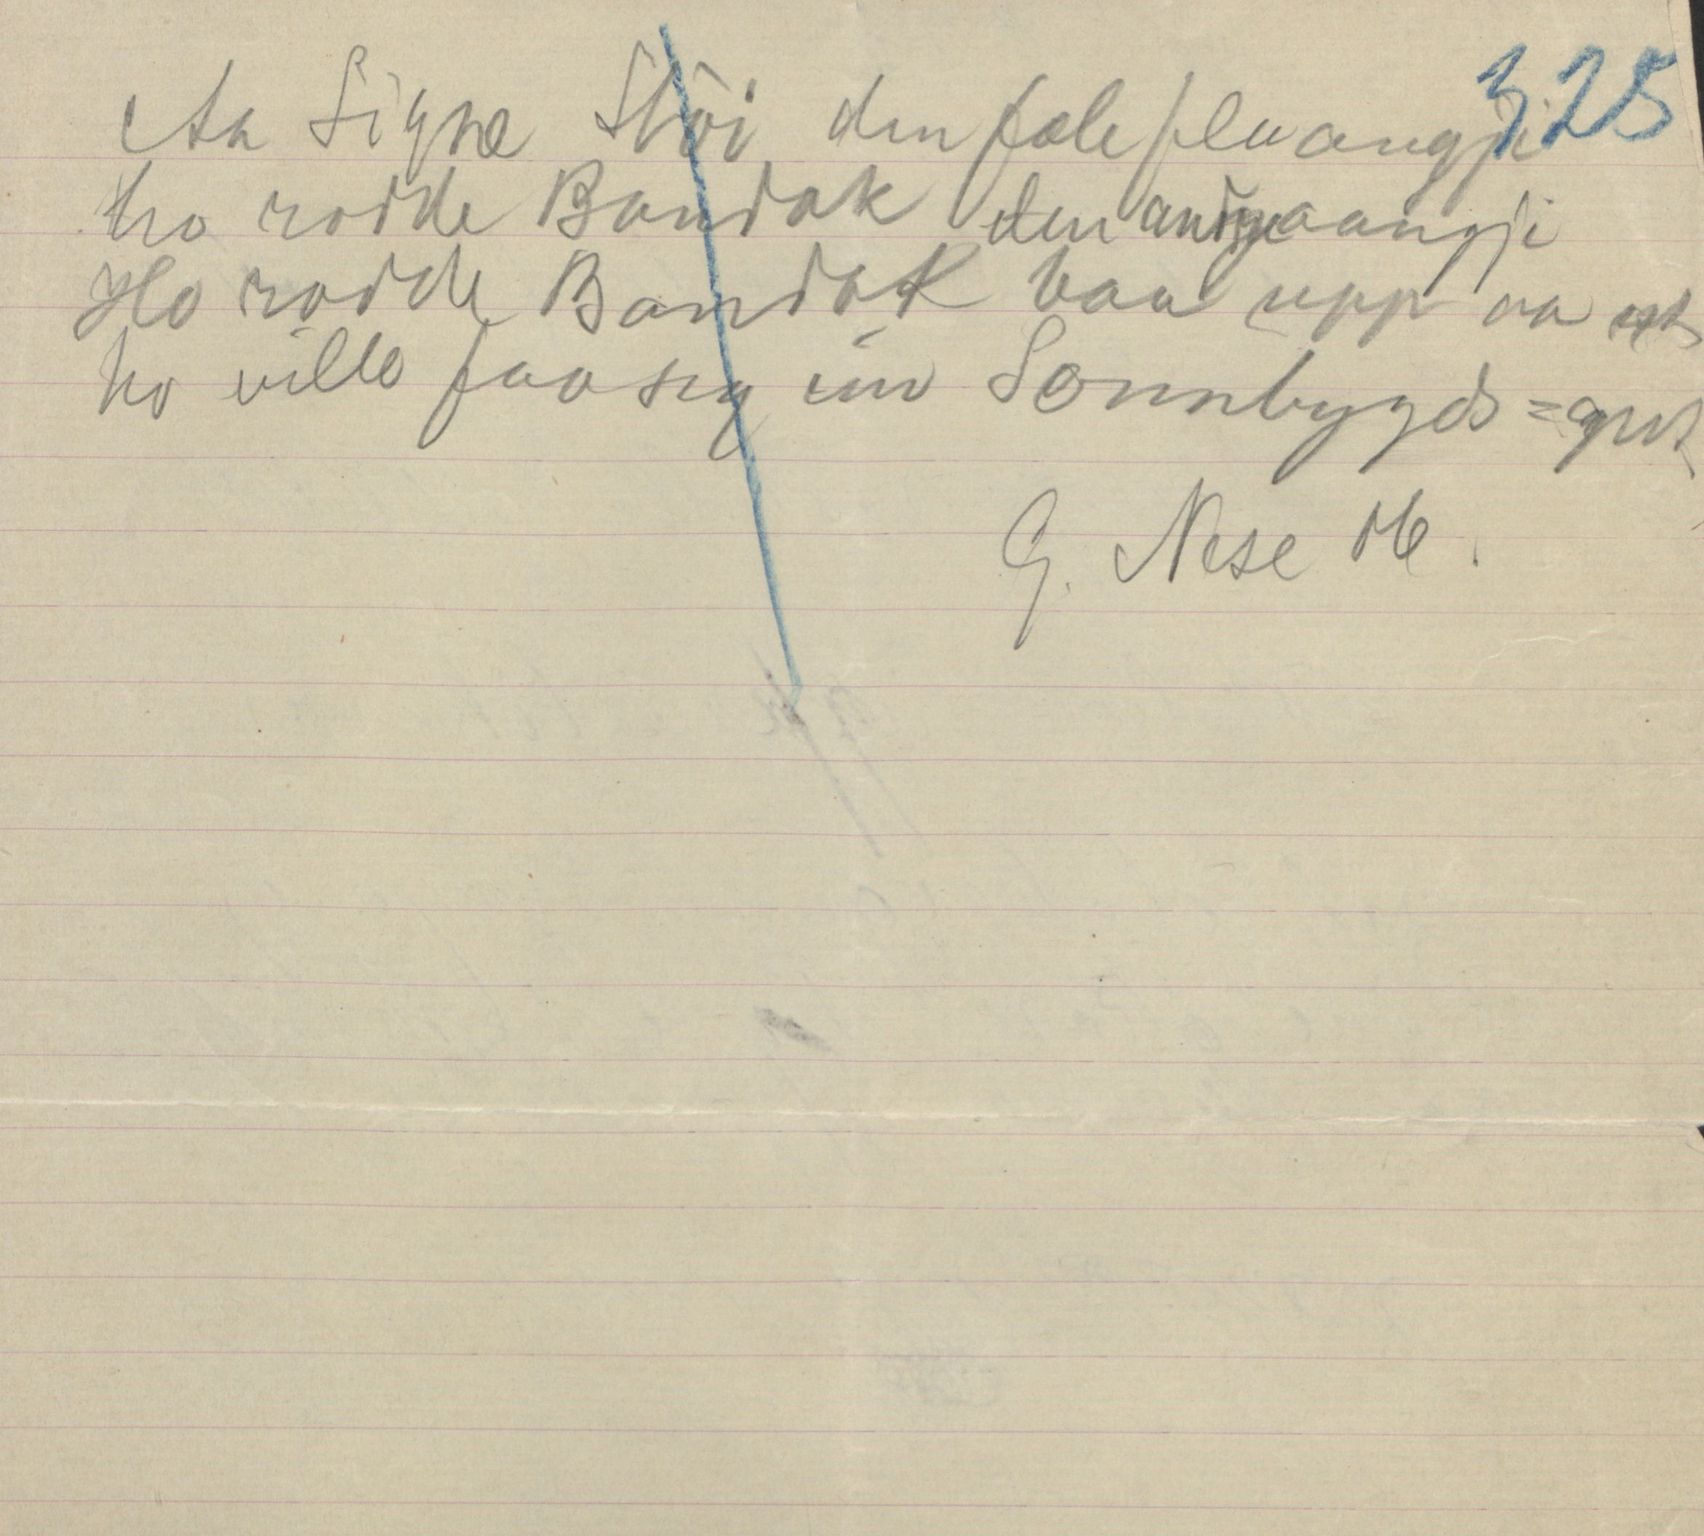 325
Aa Signe Støi den fæle fluangji
ho rodde Bandak den andre gaangji
Ho rodde Bandak baa upp aa ut
ho ville faa seg ein Sonnbygds=gut
G. Nese 16.